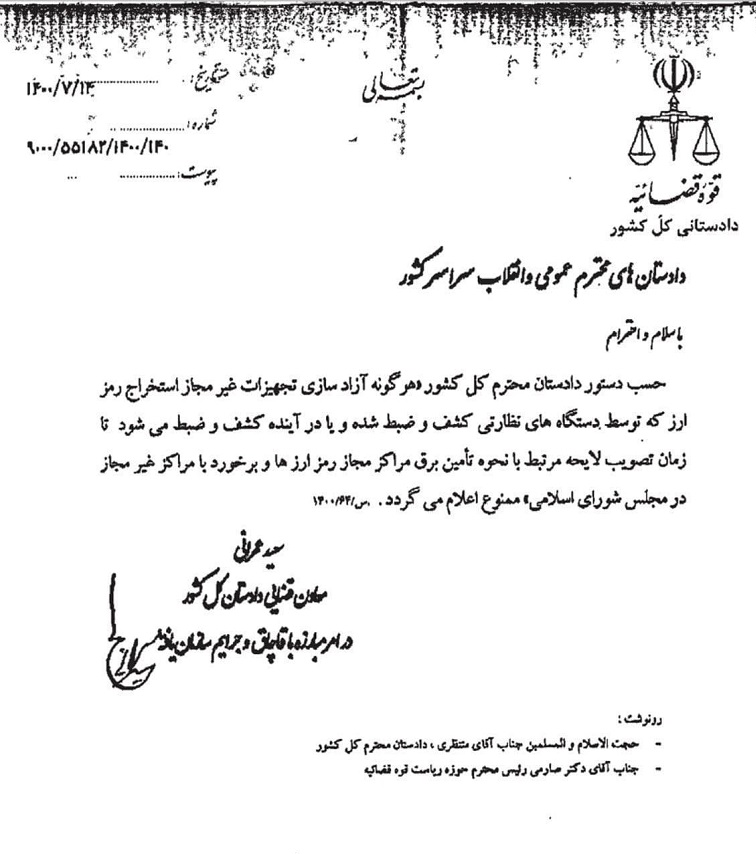 بسمه تعالی
تاریخ: ۱۴۰۰/۷/۱۴
شماره:
۹۰۰۰/۵۵۱۸۲/۱۴۰۰/۱۴۰
پیوست:
قوه قضائیه
دادستانی کل کشور
دادستان های محترم عمومی و انقلاب سراسر کشور
با سلام و احترام
حسب دستور دادستان محترم کل کشور «هرگونه آزاد سازی تجهیزات غیر مجاز استخراج رمز
ارز که توسط دستگاه های نظارتی کشف و ضبط شده و یا در آینده کشف و ضبط می شود تا
زمان تصویب لایحه مرتبط با نحوه تأمین برق مراکز مجاز رمز ارز ها و برخورد با مراکز غیر مجاز
در مجلس شورای اسلامی» ممنوع اعلام می گردد. .س/۱۴۰۰/۶۴
سعید عمرانی
معاون قضایی دادستان کل کشور
در امر مبارزه با قاچاق و جرایم سازمان یافته
رونوشت :
- حجت الاسلام و المسلمین جناب آقای منتظری ، دادستان محترم کل کشور
- جناب آقای دکتر صارمی رئیس محترم حوزه ریاست قوه قضائیه